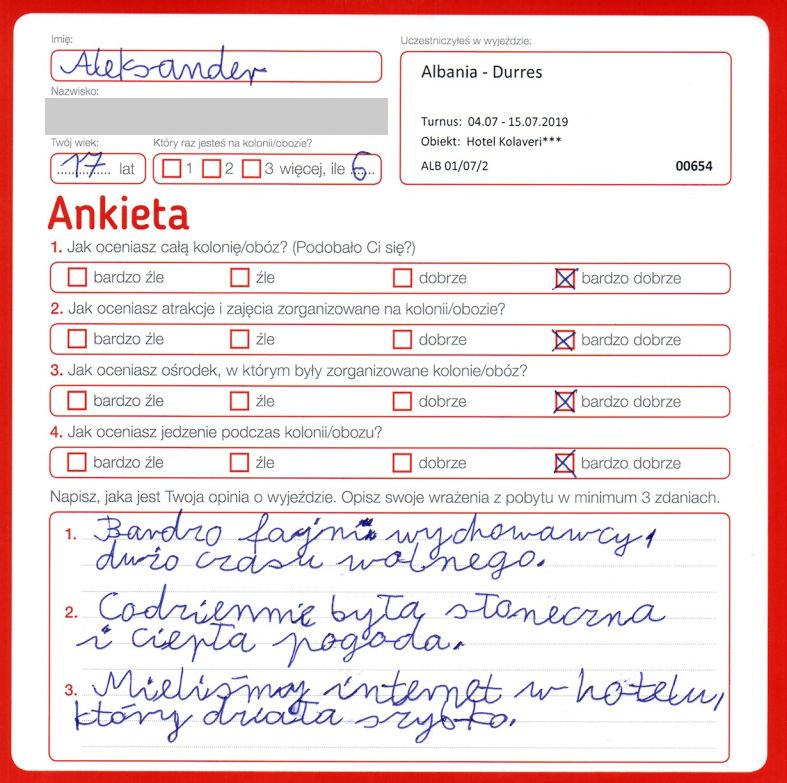 Imię:
Aleksander
Nazwisko:
Twój wiek:
17 lat
Który raz jesteś na kolonii/obozie?
1 2 3 więcej, ile 6
Uczestniczyłeś w wyjeździe:
Albania - Durres
Turnus: 04.07 - 15.07.2019
Obiekt: Hotel Kolaveri***
ALB 01/07/2 00654
Ankieta
1. Jak oceniasz całą kolonię/obóz? (Podobało Ci się?)
bardzo źle źle dobrze bardzo dobrze
2. Jak oceniasz atrakcje i zajęcia zorganizowane na kolonii/obozie?
bardzo źle źle dobrze bardzo dobrze
3. Jak oceniasz ośrodek, w którym były zorganizowane kolonie/obóz?
bardzo źle źle dobrze bardzo dobrze
4. Jak oceniasz jedzenie podczas kolonii/obozu?
bardzo źle źle dobrze bardzo dobrze
Napisz, jaka jest Twoja opinia o wyjeździe. Opisz swoje wrażenia z pobytu w minimum 3 zdaniach.
1. Bardzo fajni wychowawcy,
dużo czasu wolnego.
2. Codziennie była słoneczna
i ciepła pogoda.
3. Mieliśmy internet w hotelu,
który działa szybko.